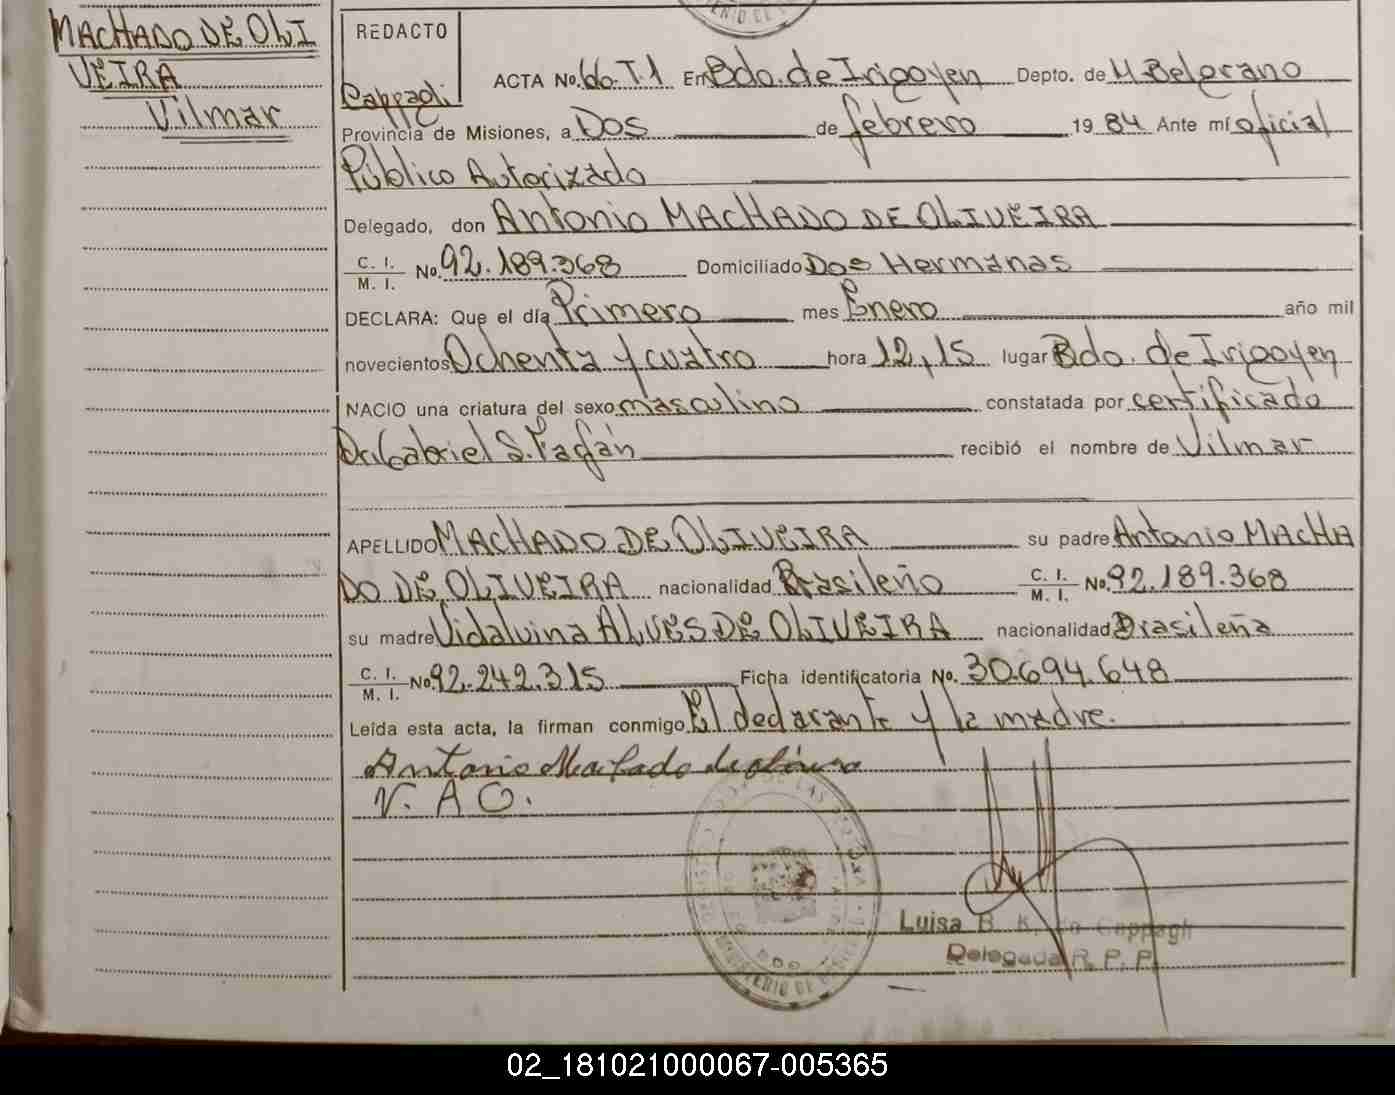 MACHADO DE OLI
VEIRA
Vilmar
REDACTO
Cappagli
ACTA No. 66. T.1 En Bdo. de Irigoyen Depto. de M. Belgrano
Provincia de Misiones, a Dos de febrero 1984 Ante mí oficial
Público Autorizado
Delegado, don Antonio MACHADO DE OLIVEIRA
C. I.
M. I. No. 92.189.368 Domiciliado Dos Hermanas
DECLARA: Que el día Primero mes Enero año mil
novecientos Ochenta y cuatro hora 12,15 lugar Bdo. de Irigoyen
NACIO una criatura del sexo masculino constatada por certificado
Dr. Gabriel S. Fagán recibió el nombre de Vilmar
APELLIDO MACHADO DE OLIVEIRA su padre Antonio MACHA
DO DE OLIVEIRA nacionalidad Brasileño C. I. M. I. No. 92.189.368
su madre Vidalvina ALVES DE OLIVEIRA nacionalidad Brasileña
C. I. M. I. No. 92.242.315 Ficha identificatoria No. 30.694.648
Leída esta acta, la firman conmigo El declarante y la madre.
Antonio Machado de oliveira
V. A O.
Luisa B. K. de Cappagli
Delegada R. P. P.
02_181021000067-005365